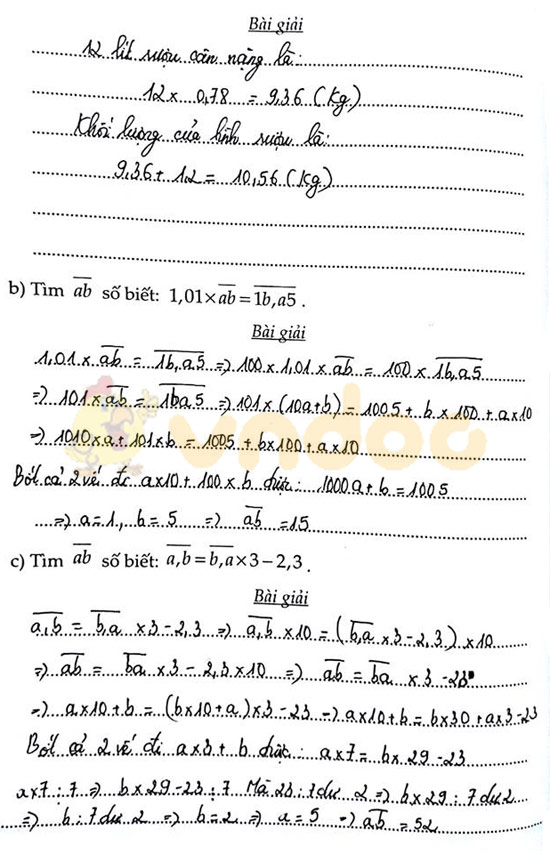 Bài giải
12 lít rượu cân nặng là:
12 x 0,78 = 9,36 (kg)
Khối lượng của bình rượu là:
9,36 + 1,2 = 10,56 (kg)
b) Tìm \overline{ab} số biết: 1,01×\overline{ab}=\overline{1b,a5} .
Bài giải
1,01 x \overline{ab} = \overline{1b,a5} => 100 x 1,01 x \overline{ab} = 100 x \overline{1b,a5}
=> 101 x \overline{ab} = \overline{1ba5} => 101 x (10a+b) = 1005 + b x 100 + a x 10
=> 1010 x a + 101 x b = 1005 + b x 100 + a x 10
Bớt cả 2 vế đi a x 10 + 100 x b được: 1000a + b = 1005
=> a = 1, b = 5 => \overline{ab} = 15
c) Tìm \overline{ab} số biết: \overline{a,b}=\overline{b,a}×3−2,3 .
Bài giải
\overline{a,b} = \overline{b,a} x 3 - 2,3 => \overline{a,b} x 10 = (\overline{b,a} x 3 - 2,3) x 10
=> \overline{ab} = \overline{ba} x 3 - 2,3 x 10 => \overline{ab} = \overline{ba} x 3 - 23
=> a x 10 + b = (b x 10 + a) x 3 - 23 => a x 10 + b = b x 30 + a x 3 - 23
Bớt cả 2 vế đi a x 3 + b được: a x 7 = b x 29 - 23
a x 7 : 7 => b x 29 - 23 : 7 Mà 23 : 7 dư 2 => b x 29 : 7 dư 2
=> b : 7 dư 2 => b = 2 => a = 5 => \overline{ab} = 52
vndoc